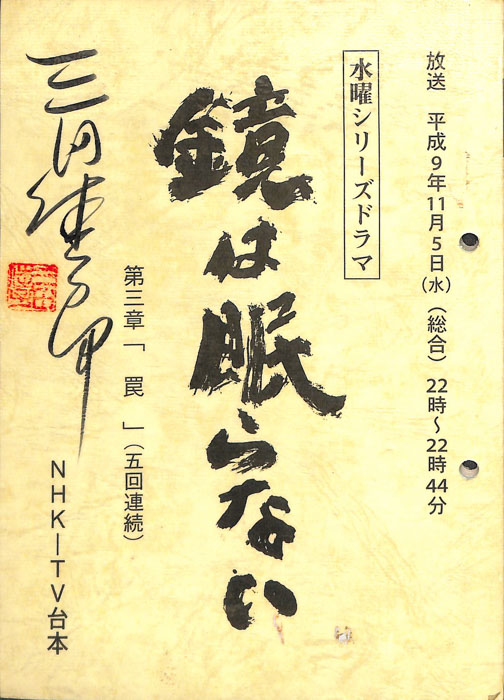 放送 平成9年11月5日(水)(総合)22時～22時44分
水曜シリーズドラマ
鏡は眠らない
第三章「罠」(五回連続)
三田佳子
NHK－TV台本